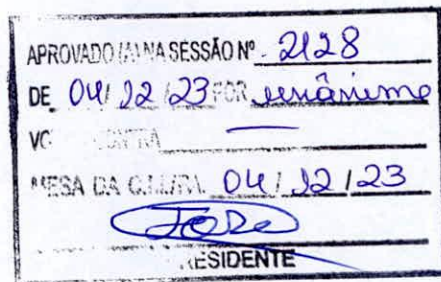 APROVADO (A) NA SESSÃO Nº 2128
DE 04/12/23 POR unânime
VO CONTRA —
MESA DA 04/12/23
PRESIDENTE